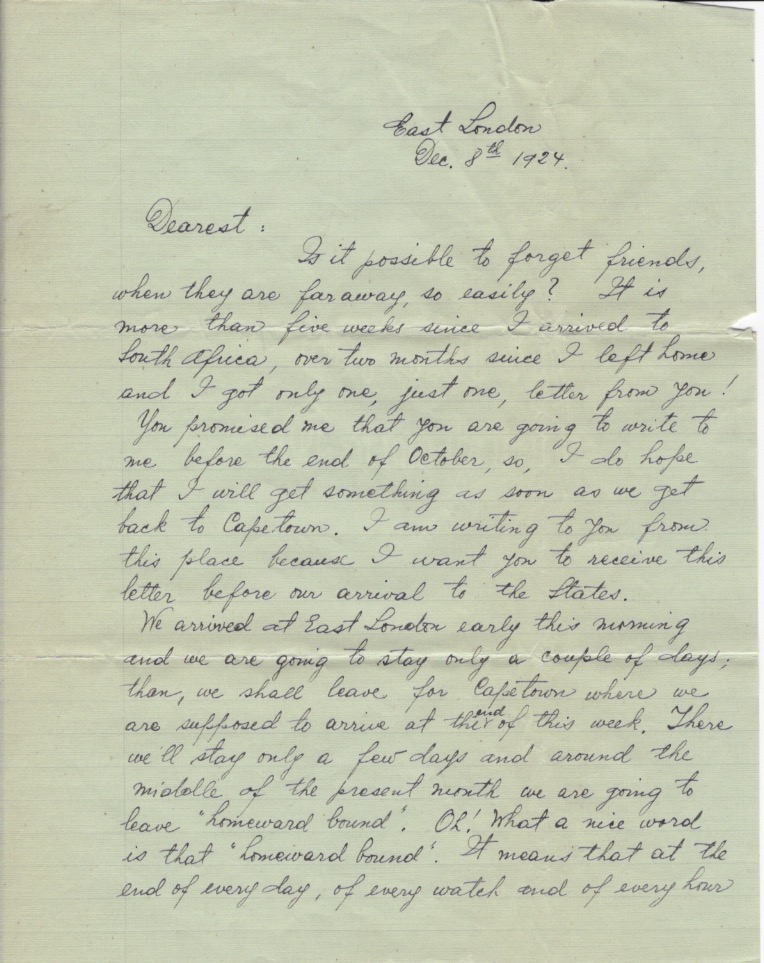 East London
Dec. 8th 1924.
Dearest:
Is it possible to forget friends,
when they are far away, so easily? It is
more than five weeks since I arrived to
South Africa, over two months since I left home
and I got only one, just one, letter from you!
You promised me that you are going to write to
me before the end of October, so, I do hope
that I will get something as soon as we get
back to Capetown. I am writing to you from
this place because I want you to receive this
letter before our arrival to the States.
We arrived at East London early this morning
and we are going to stay only a couple of days;
than, we shall leave for Capetown where we
are supposed to arrive at the end of this week. There
we'll stay only a few days and around the
middle of the present month we are going to
leave "homeward bound". Oh! What a nice word
is that "homeward bound". It means that at the
end of every day, of every watch and of every hour